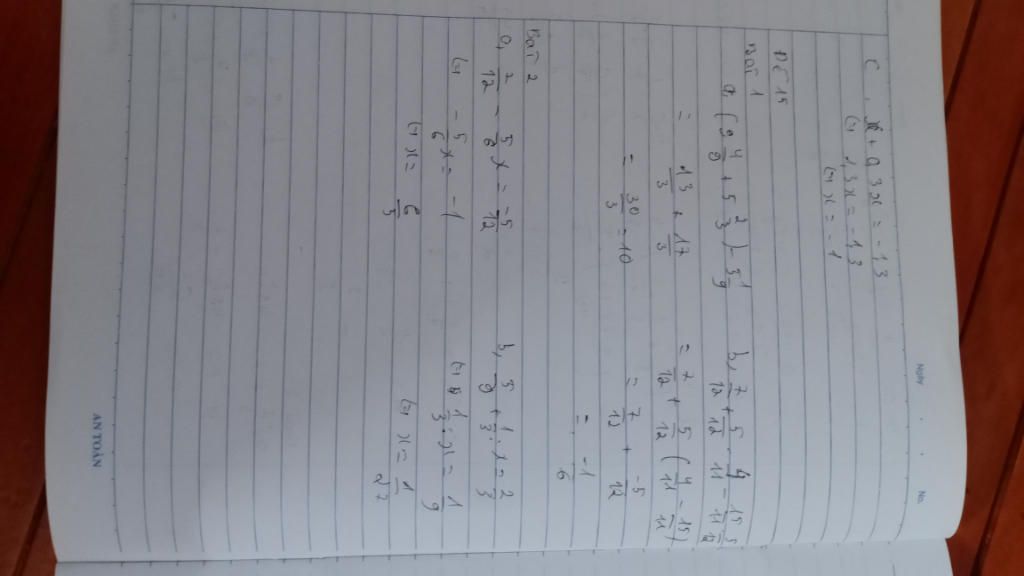 Ngày . . No.
C, x + 0,3x = -1,3
(=) 1,3x = -1,3
(=) x = -1
ĐỀ 15
BÀI 1
a, (9 4/9 + 5 2/3) - 3 4/9
= 13/3 + 17/3
= 30/3 = 10
b, 7/12 + 5/12 . 4/11 - 15/11 . 5/12
= 7/12 + 5/12 (4/11 - 15/11)
= 7/12 + -5/12
= -1/6
Bài 2
a, 2/12 - 5/6 x = -5/12
(=) -5/6 x = -1
(=) x = 6/5
b, 5/9 + 1/3 : x = 2/3
(=) 1/3 : x = 1/9
(=) x = 1/27
AN TOÀN